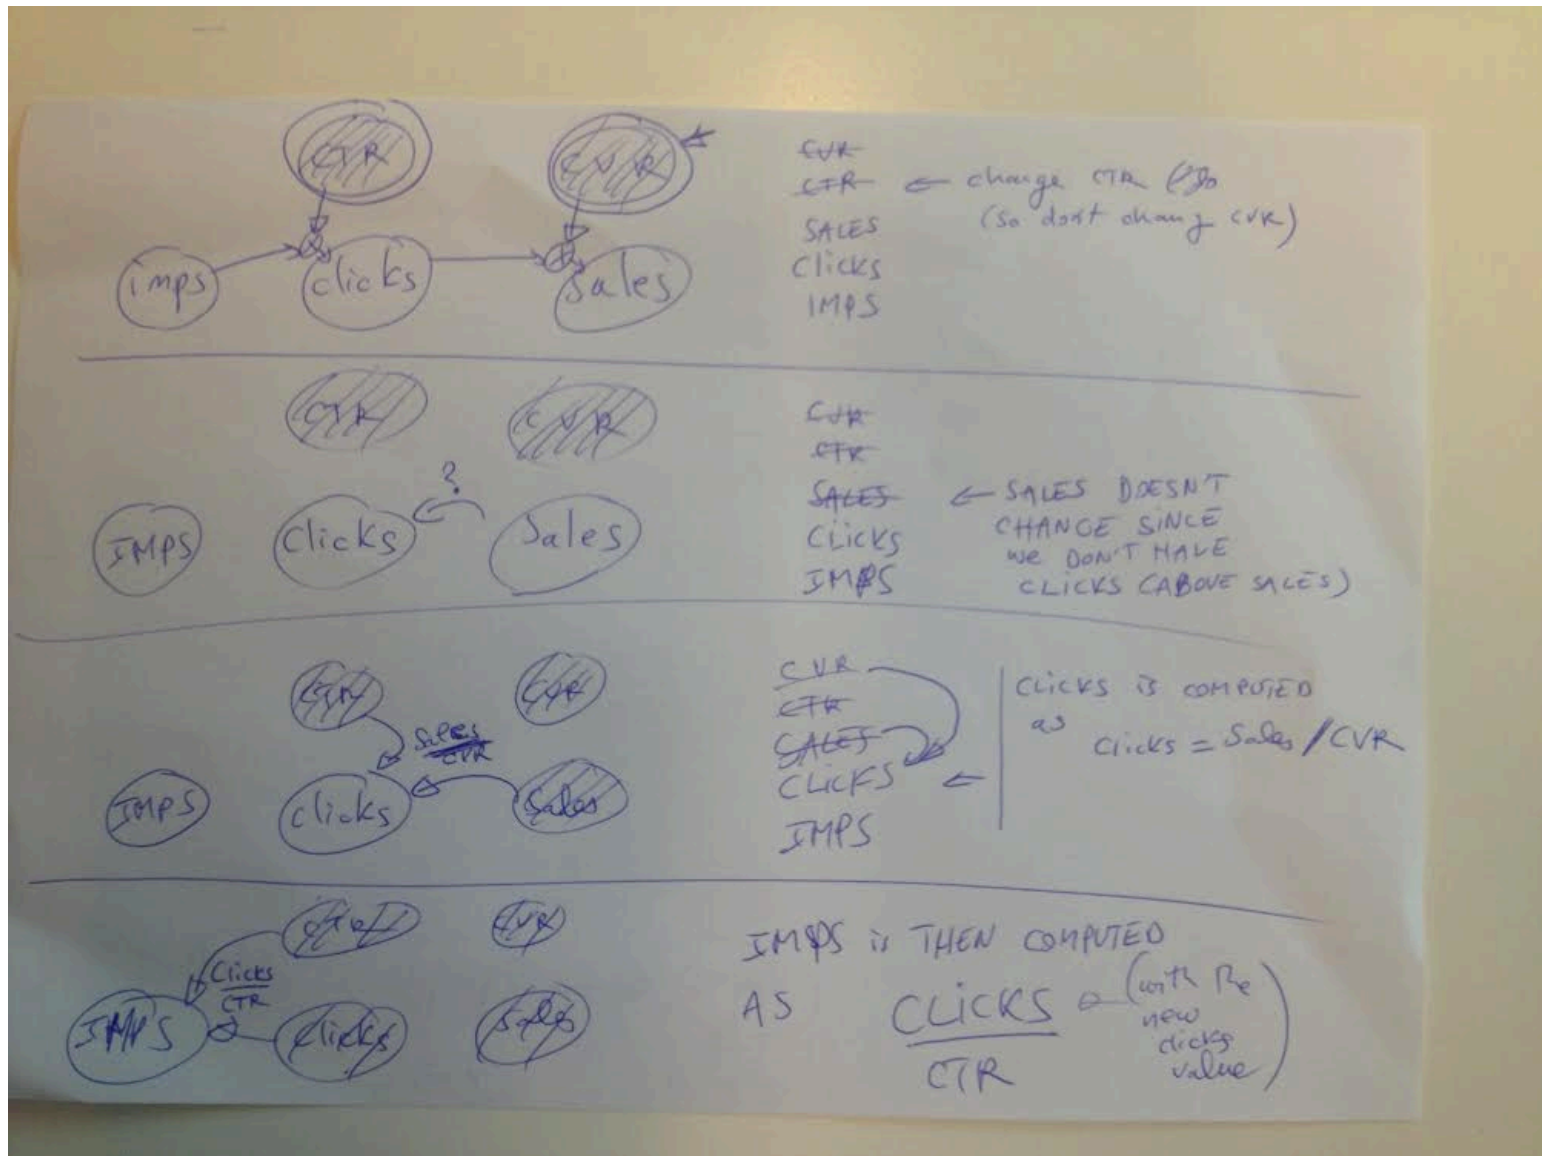 CTR
CVR
imps
clicks
Sales
CVR
CTR ← change CTR
(so don't chang CVR)
SALES
Clicks
IMPS
CTR
CVR
?
IMPS
Clicks
Sales
CVR
CTR
SALES ← SALES DOESN'T
CHANGE SINCE
WE DON'T HAVE
CLICKS (ABOVE SALES)
CLICKS
IMPS
CTR
CVR
Sales
CVR
IMPS
clicks
Sales
CVR
CTR
SALES
CLICKS ←
IMPS
CLICKS IS COMPUTED
as
Clicks = Sales / CVR
CTR
CVR
Clicks
CTR
IMPS
Clicks
Sales
IMPS is THEN COMPUTED
AS
CLICKS
CTR
(with the
new
clicks
value)